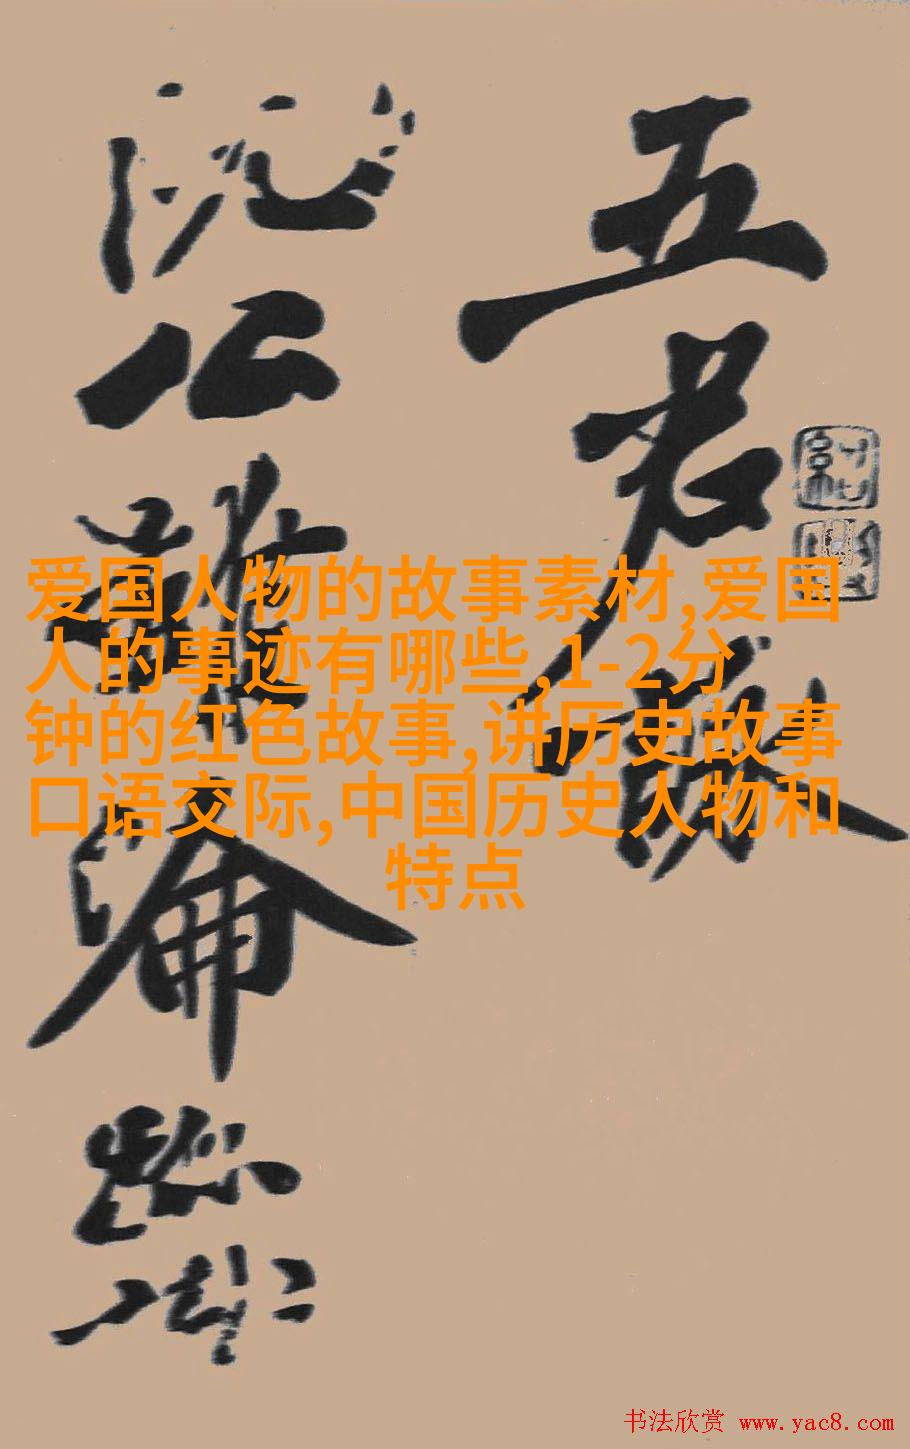 五君咏
阮公虽沦跡
爱国人物的故事素材,爱国
人的事迹有哪些,1-2分
钟的红色故事,讲历史故事
口语交际,中国历史人物和
特点
书法欣赏 www.yac8.com